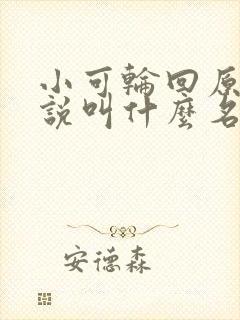 小可輪回原
說叫什麼名
安德森